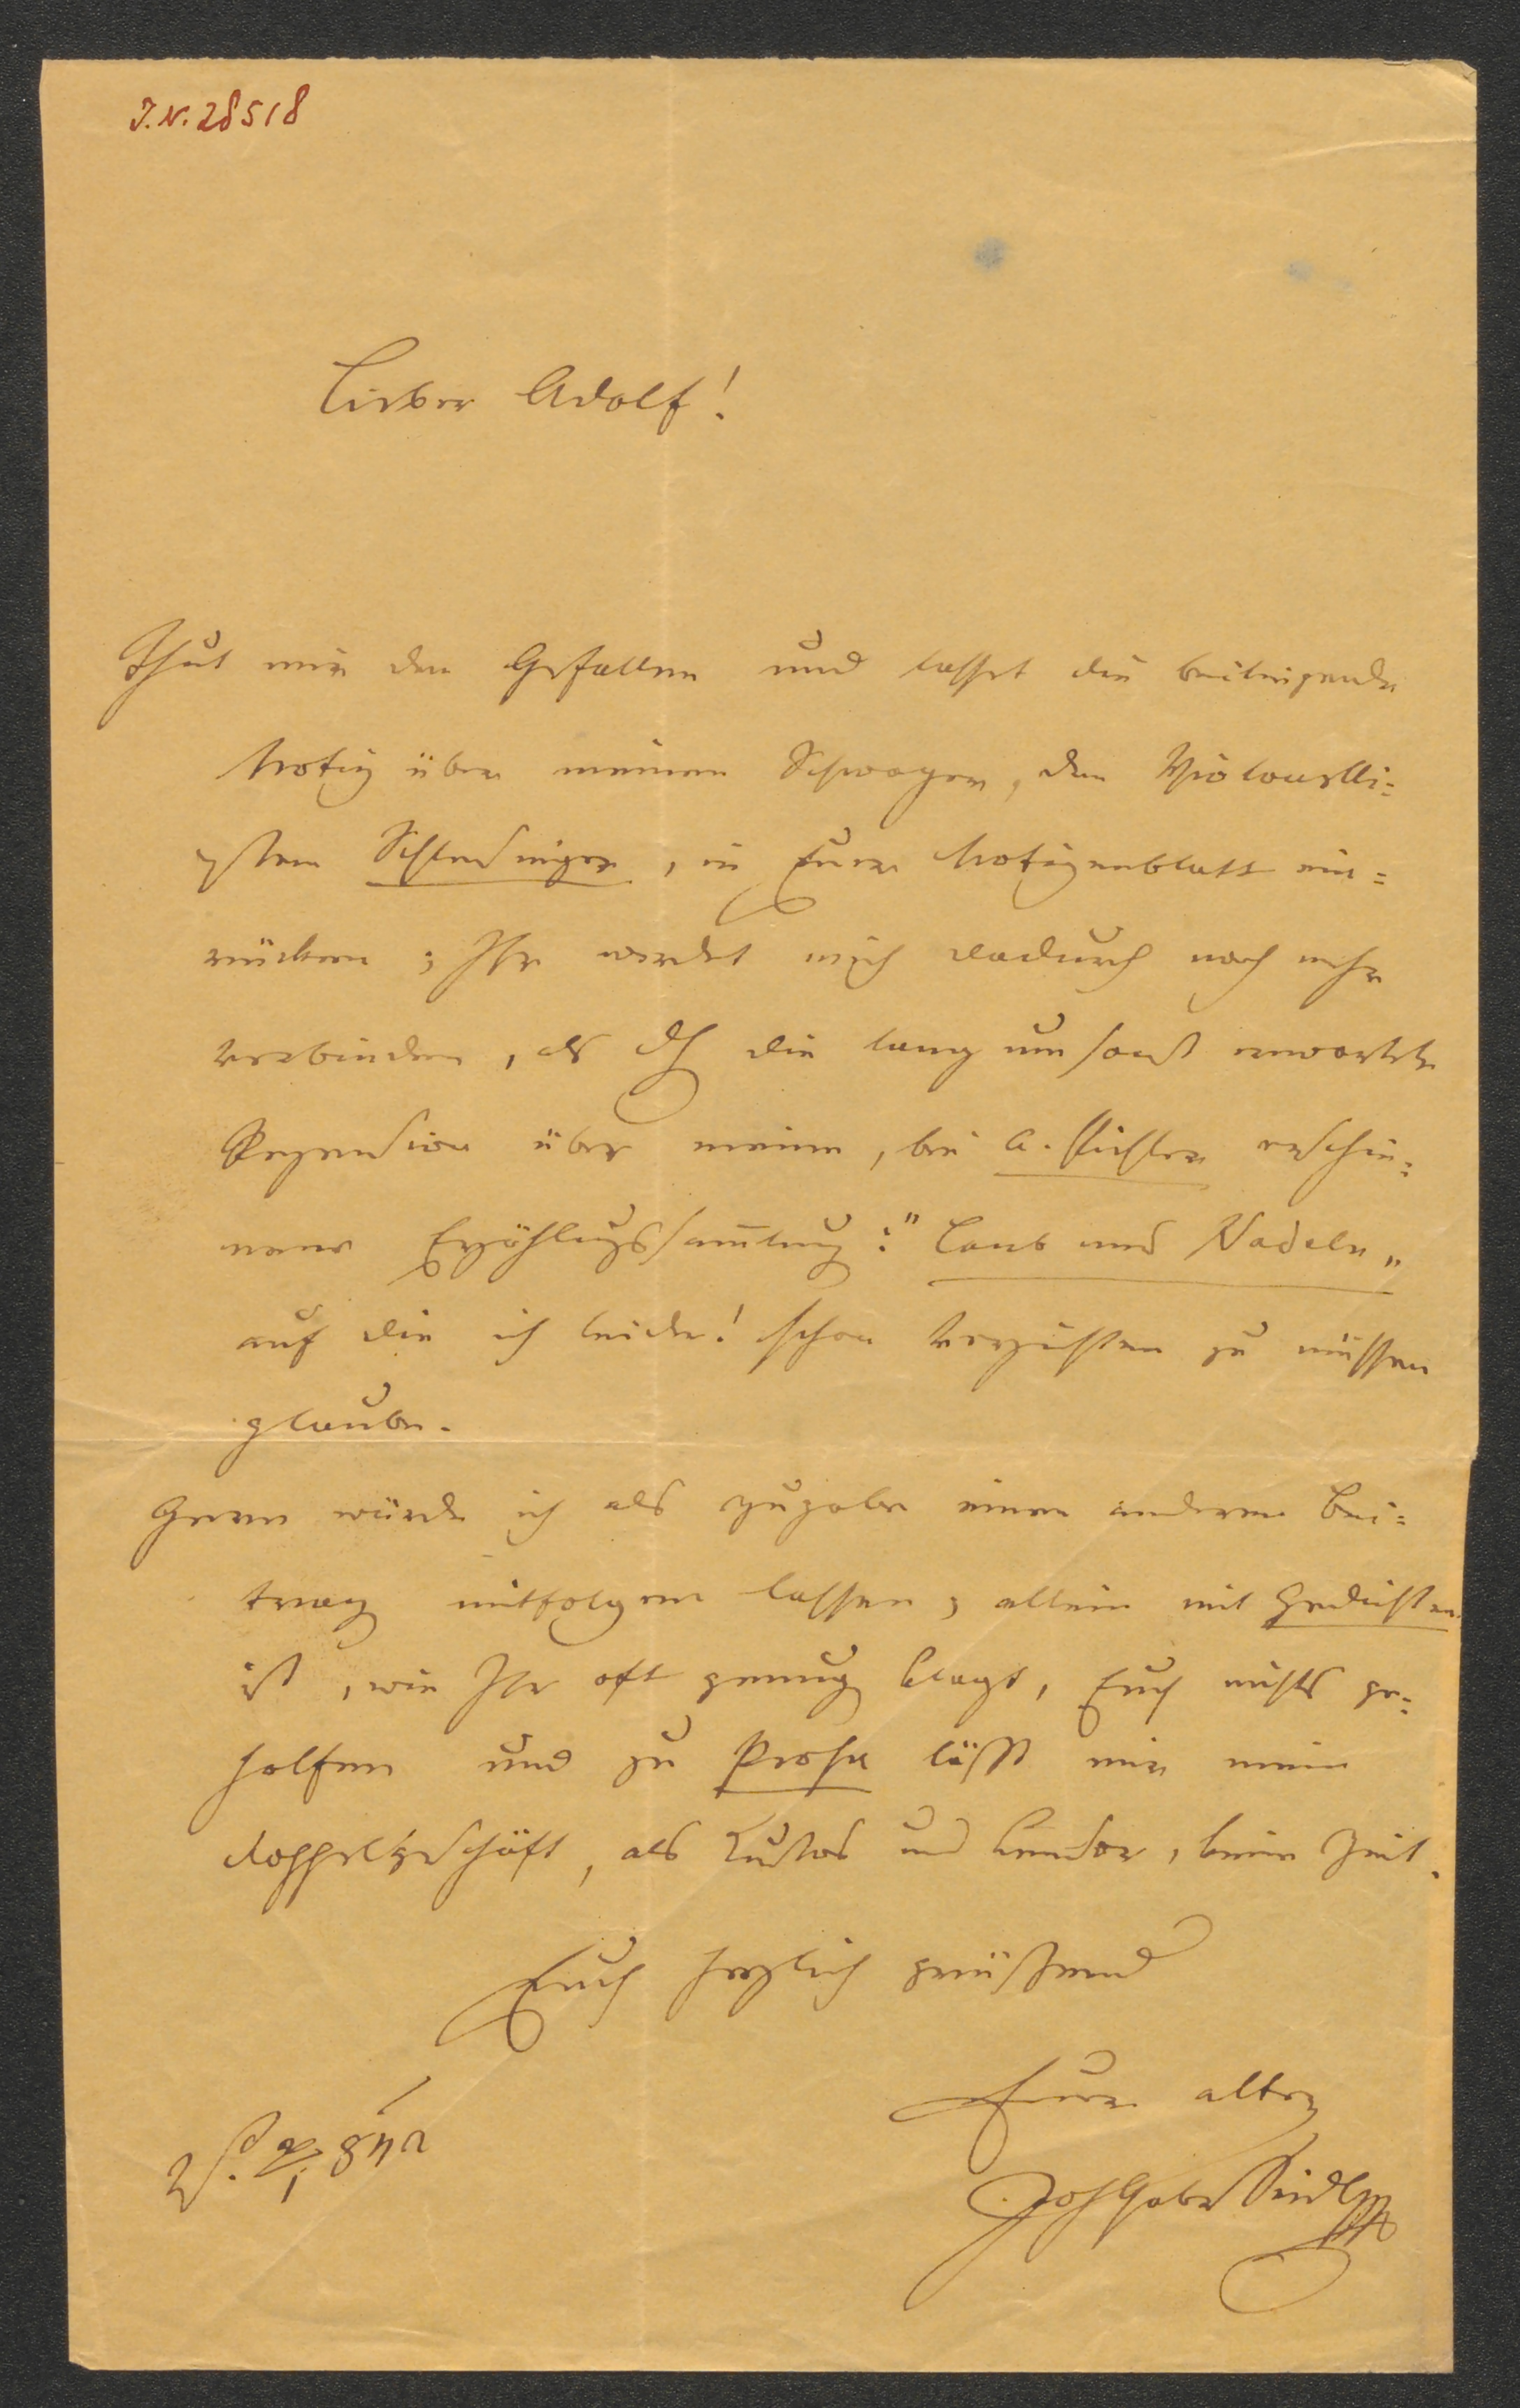 J.N. 28518
Lieber Adolf!
Thut mir den Gefallen und lasset die beiliegende
Notiz über meinen Schwager, den Violoncelli=
sten Schlesinger, in Eurem Notizenblatt ein=
rücken; Ihr werdet mich dadurch noch mehr
verbinden, als durch die lang umsonst erwartete
Rezension über meine, bei A. Pichler erschie=
nene Erzählungssam̅lung: "Laub und Nadeln"
auf die ich leider! schon verzichten zu müssen
glaube.
Gerne würde ich als Zugabe einen anderen Bei=
trag mitfolgen lassen, allein mit Gedichten
ist, wie Ihr oft genug klagt, Euch nichts ge=
holfen und zu Prosa läßt mir mein
Doppelgeschäft, als Kustos und Censor, keine Zeit.
Euch herzlich grüßend
Euer alter
Joh Gabr Seidl
842